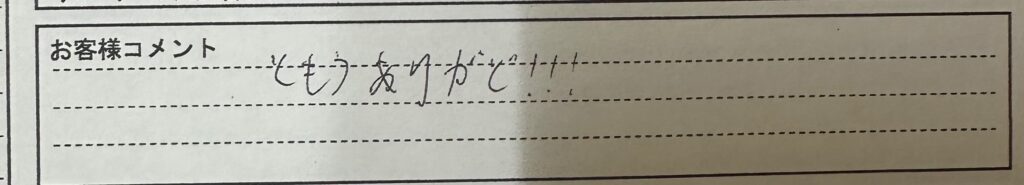 お客様コメント
ともう ありがど!!!